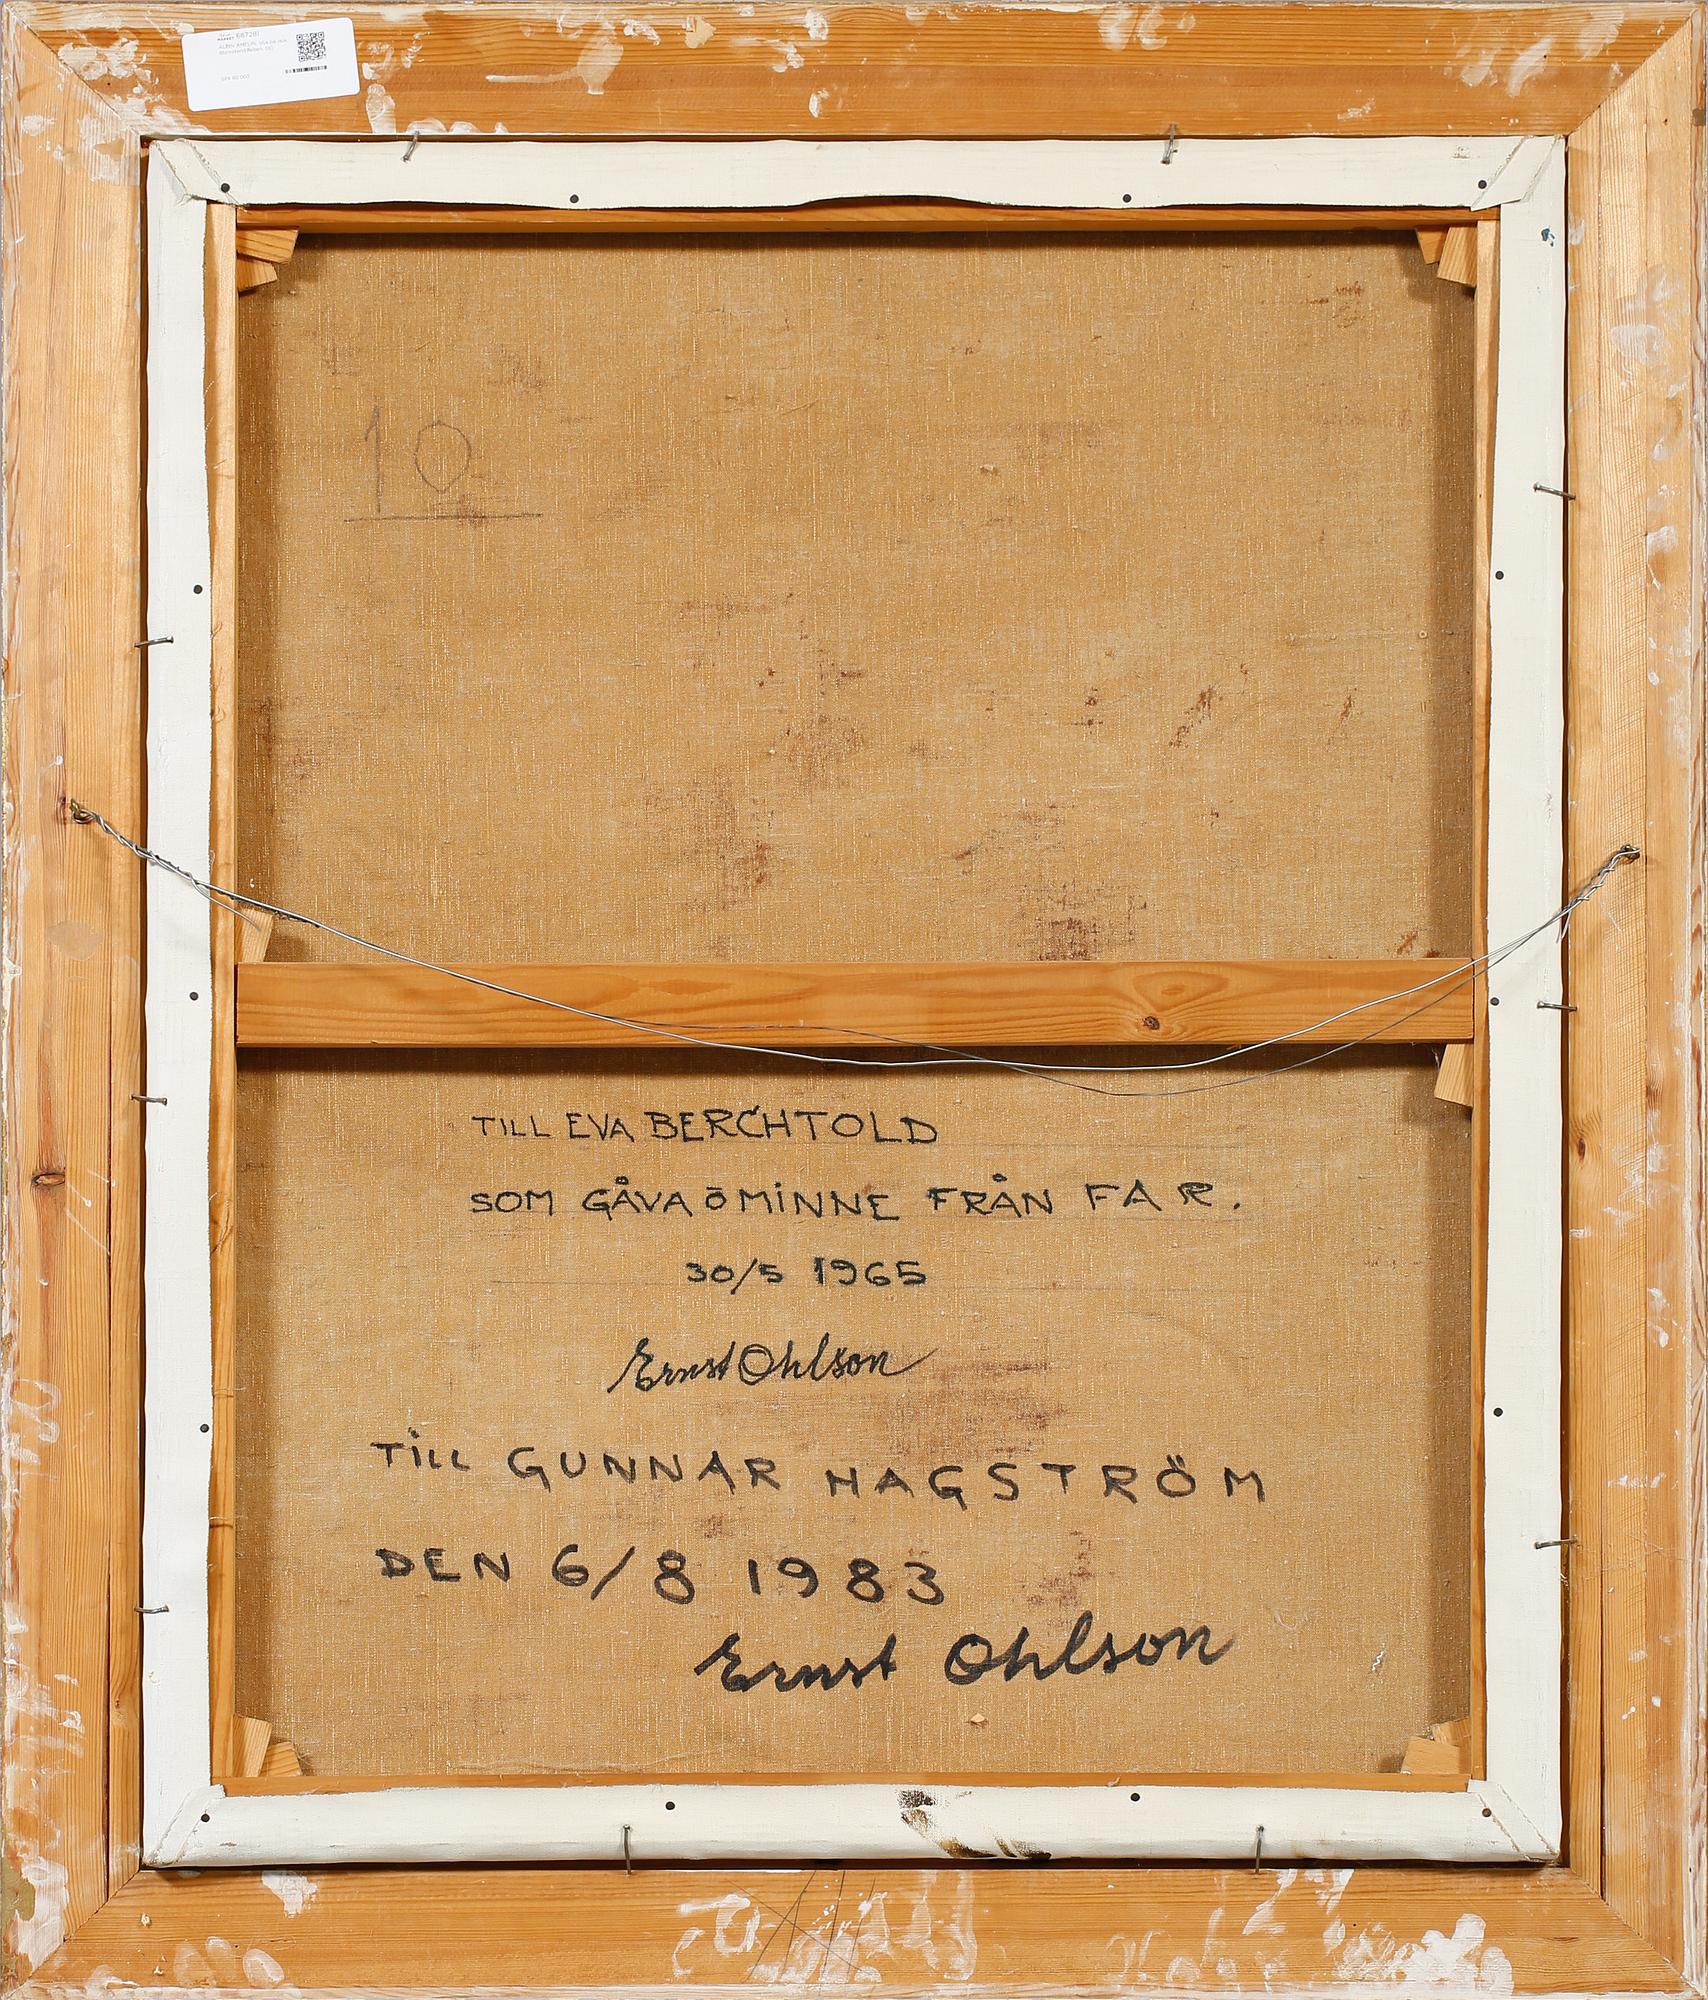 MARKET 667281
ALBIN AMELIN,
SEK 60 000
10
TILL EVA BERCHTOLD
SOM GÅVA Ō MINNE FRÅN FAR.
30/5 1965
Ernst Ohlson
TILL GUNNAR HAGSTRÖM
DEN 6/8 1983
Ernst Ohlson